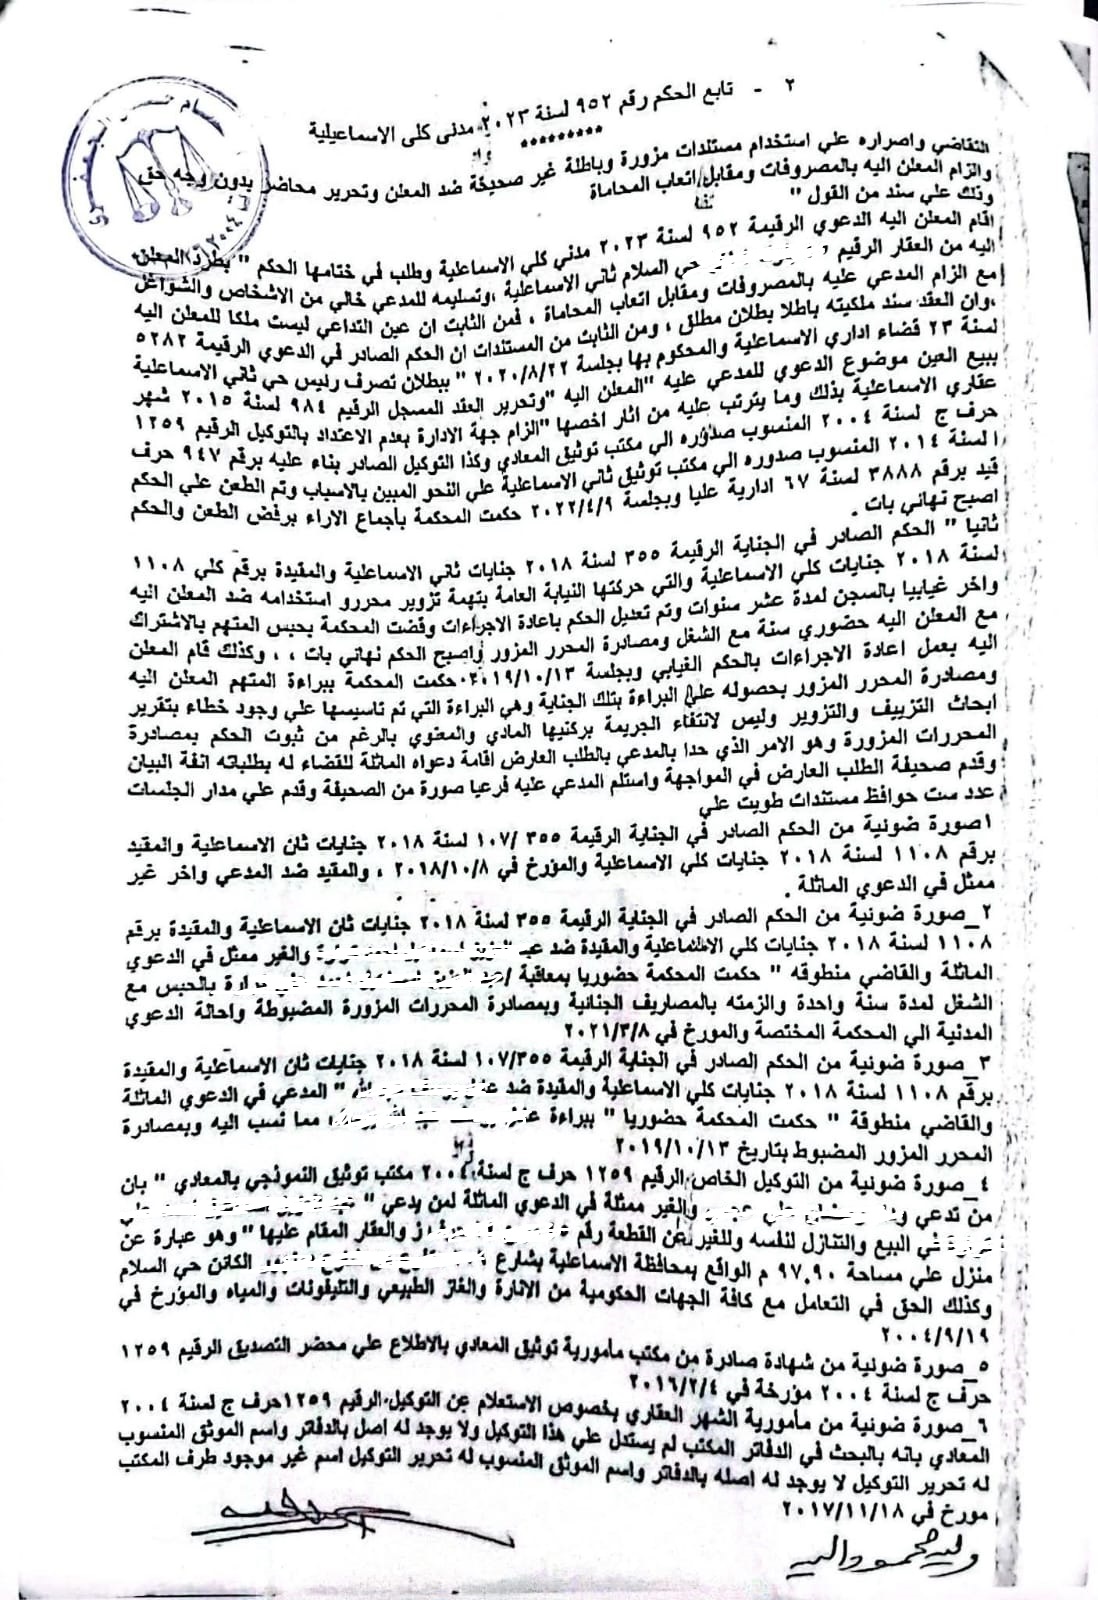 ٢ - تابع الحكم رقم ٩٥٢ لسنة ٢٠٢٣ مدنى كلى الاسماعيلية
*********
التقاضي واصراره علي استخدام مستندات مزورة وباطلة غير صحيحة ضد المعلن وتحرير محاضر بدون وجه حق
والزام المعلن اليه بالمصروفات ومقابل اتعاب المحاماة
وذلك علي سند من القول "
اقام المعلن اليه الدعوي الرقيمة ٩٥٢ لسنة ٢٠٢٣ مدني كلي الاسماعلية وطلب في ختامها الحكم " بطرد المعلن
اليه من العقار الرقيم حي السلام ثاني الاسماعلية ،وتسليمه للمدعي خالي من الاشخاص والشواغل
مع الزام المدعي عليه بالمصروفات ومقابل اتعاب المحاماة ، فمن الثابت ان عين التداعي ليست ملكا للمعلن اليه
،وان العقد سند ملكيته باطلا بطلان مطلق ، ومن الثابت من المستندات ان الحكم الصادر في الدعوي الرقيمة ٥٢٨٢
لسنة ٢٣ قضاء اداري الاسماعلية والمحكوم بها بجلسة ٢٠٢٠/٨/٢٢ " ببطلان تصرف رئيس حي ثاني الاسماعلية
ببيع العين موضوع الدعوي للمدعي عليه "المعلن اليه "وتحرير العقد المسجل الرقيم ٩٨٤ لسنة ٢٠١٥ شهر
عقاري الاسماعلية بذلك وما يترتب عليه من اثار اخصها "الزام جهة الادارة بعدم الاعتداد بالتوكيل الرقيم ١٢٥٩
حرف ج لسنة ٢٠٠٤ المنسوب صدوره الي مكتب توثيق المعادي وكذا التوكيل الصادر بناء عليه برقم ٩٤٧ حرف
ا لسنة ٢٠١٤ المنسوب صدوره الي مكتب توثيق ثاني الاسماعلية علي النحو المبين بالاسباب وتم الطعن علي الحكم
قيد برقم ٣٨٨٨ لسنة ٦٧ ادارية عليا وبجلسة ٢٠٢٢/٤/٩ حكمت المحكمة بأجماع الاراء برفض الطعن والحكم
اصبح نهاني بات .
ثانيا " الحكم الصادر في الجناية الرقيمة ٣٥٥ لسنة ٢٠١٨ جنايات ثاني الاسماعلية والمقيدة برقم كلي ١١٠٨
لسنة ٢٠١٨ جنايات كلي الاسماعلية والتي حركتها النيابة العامة بتهمة تزوير محررو استخدامه ضد المعلن اليه
واخر غيابيا بالسجن لمدة عشر سنوات وتم تعديل الحكم باعادة الاجراءات وقضت المحكمة بحبس المتهم بالاشتراك
مع المعلن اليه حضوري سنة مع الشغل ومصادرة المحرر المزور واصبح الحكم نهاني بات ، ، وكذلك قام المعلن
اليه بعمل اعادة الاجراءات بالحكم الغيابي وبجلسة ٢٠١٩/١٠/١٣ حكمت المحكمة ببراءة المتهم المعلن اليه
ومصادرة المحرر المزور بحصوله علي البراءة بتلك الجناية وهي البراءة التي تم تاسيسها علي وجود خطاء بتقرير
ابحاث التزييف والتزوير وليس لانتفاء الجريمة بركنيها المادي والمعنوي بالرغم من ثبوت الحكم بمصادرة
المحررات المزورة وهو الامر الذي حدا بالمدعي بالطلب العارض اقامة دعواه الماثلة للقضاء له بطلباته انفة البيان
وقدم صحيفة الطلب العارض في المواجهة واستلم المدعي عليه فرعيا صورة من الصحيفة وقدم علي مدار الجلسات
عدد ست حوافظ مستندات طويت علي
١صورة ضونية من الحكم الصادر في الجناية الرقيمة ٣٥٥ /١٠٧ لسنة ٢٠١٨ جنايات ثان الاسماعلية والمقيد
برقم ١١٠٨ لسنة ٢٠١٨ جنايات كلي الاسماعلية والمؤرخ في ٢٠١٨/١٠/٨ ، والمقيد ضد المدعي واخر غير
ممثل في الدعوي الماثلة .
٢_صورة ضونية من الحكم الصادر في الجناية الرقيمة ٣٥٥ لسنة ٢٠١٨ جنايات ثان الاسماعلية والمقيدة برقم
١١٠٨ لسنة ٢٠١٨ جنايات كلي الاسماعلية والمقيدة ضد والغير ممثل في الدعوي
الماثلة والقاضي منطوقه " حكمت المحكمة حضوريا بمعاقبة / بالحبس مع
الشغل لمدة سنة واحدة والزمته بالمصاريف الجنانية وبمصادرة المحررات المزورة المضبوطة واحالة الدعوي
المدنية الي المحكمة المختصة والمورخ في ٢٠٢١/٣/٨
٣_صورة ضونية من الحكم الصادر في الجناية الرقيمة ١٠٧/٣٥٥ لسنة ٢٠١٨ جنايات ثان الاسماعلية والمقيدة
برقم ١١٠٨ لسنة ٢٠١٨ جنايات كلي الاسماعلية والمقيدة ضد " المدعي في الدعوي الماثلة
والقاضي منطوقة " حكمت المحكمة حضوريا " ببراءة مما نسب اليه وبمصادرة
المحرر المزور المضبوط بتاريخ ٢٠١٩/١٠/١٣
٤_صورة ضونية من التوكيل الخاص الرقيم ١٢٥٩ حرف ج لسنة ٢٠٠٤ مكتب توثيق النموذجي بالمعادي " بان
من تدعي والغير ممثلة في الدعوي الماثلة لمن يدعي " علي
في البيع والتنازل لنفسه وللغير عن القطعة رقم والعقار المقام عليها " وهو عبارة عن
منزل علي مساحة ٩٧.٩٠ م الواقع بمحافظة الاسماعلية بشارع الكائن حي السلام
وكذلك الحق في التعامل مع كافة الجهات الحكومية من الانارة والغاز الطبيعي والتليفونات والمياه والمؤرخ في
٢٠٠٤/٩/١٩
٥_صورة ضونية من شهادة صادرة من مكتب مأمورية توثيق المعادي بالاطلاع علي محضر التصديق الرقيم ١٢٥٩
حرف ج لسنة ٢٠٠٤ مؤرخة في ٢٠١٦/٢/٤
٦_صورة ضونية من مأمورية الشهر العقاري بخصوص الاستعلام عن التوكيل الرقيم ١٢٥٩حرف ج لسنة ٢٠٠٤
المعادي بانه بالبحث في الدفاتر المكتب لم يستدل علي هذا التوكيل ولا يوجد له اصل بالدفاتر واسم الموثق المنسوب
له تحرير التوكيل لا يوجد له اصله بالدفاتر واسم الموثق المنسوب له تحرير التوكيل اسم غير موجود طرف المكتب
مورخ في ٢٠١٧/١١/١٨